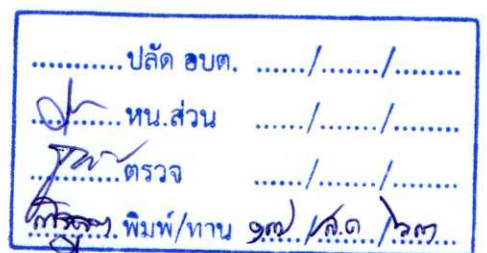 ............ปลัด อบต. ....../......./........
............หน.ส่วน ....../......./........
............ตรวจ ....../......./........
............พิมพ์/ทาน ๑๗ /ส.ค /๖๓